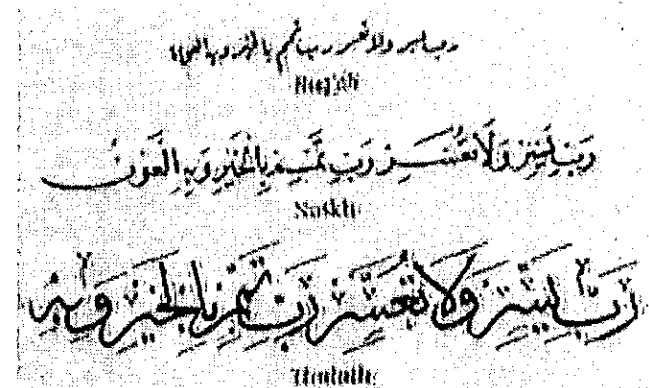 رب يسر ولا تعسر رب تمم بالخير وبه العون
Ruq'ah
رَبِّ يَسِّرْ وَلَا تُعَسِّرْ رَبِّ تَمِّمْ بِالْخَيْرِ وَبِهِ الْعَوْنُ
Naskh
رَبِّ يَسِّرْ وَلَا تُعَسِّرْ رَبِّ تَمِّمْ بِالْخَيْرِ وَبِهِ
Thuluth